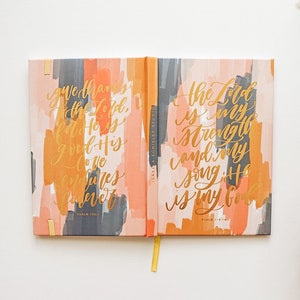 give thanks
to the Lord,
for He is
good. His
love
endures
forever.
PSALM 136:1
the Lord
is my
strength
and my
song. He
is my God.